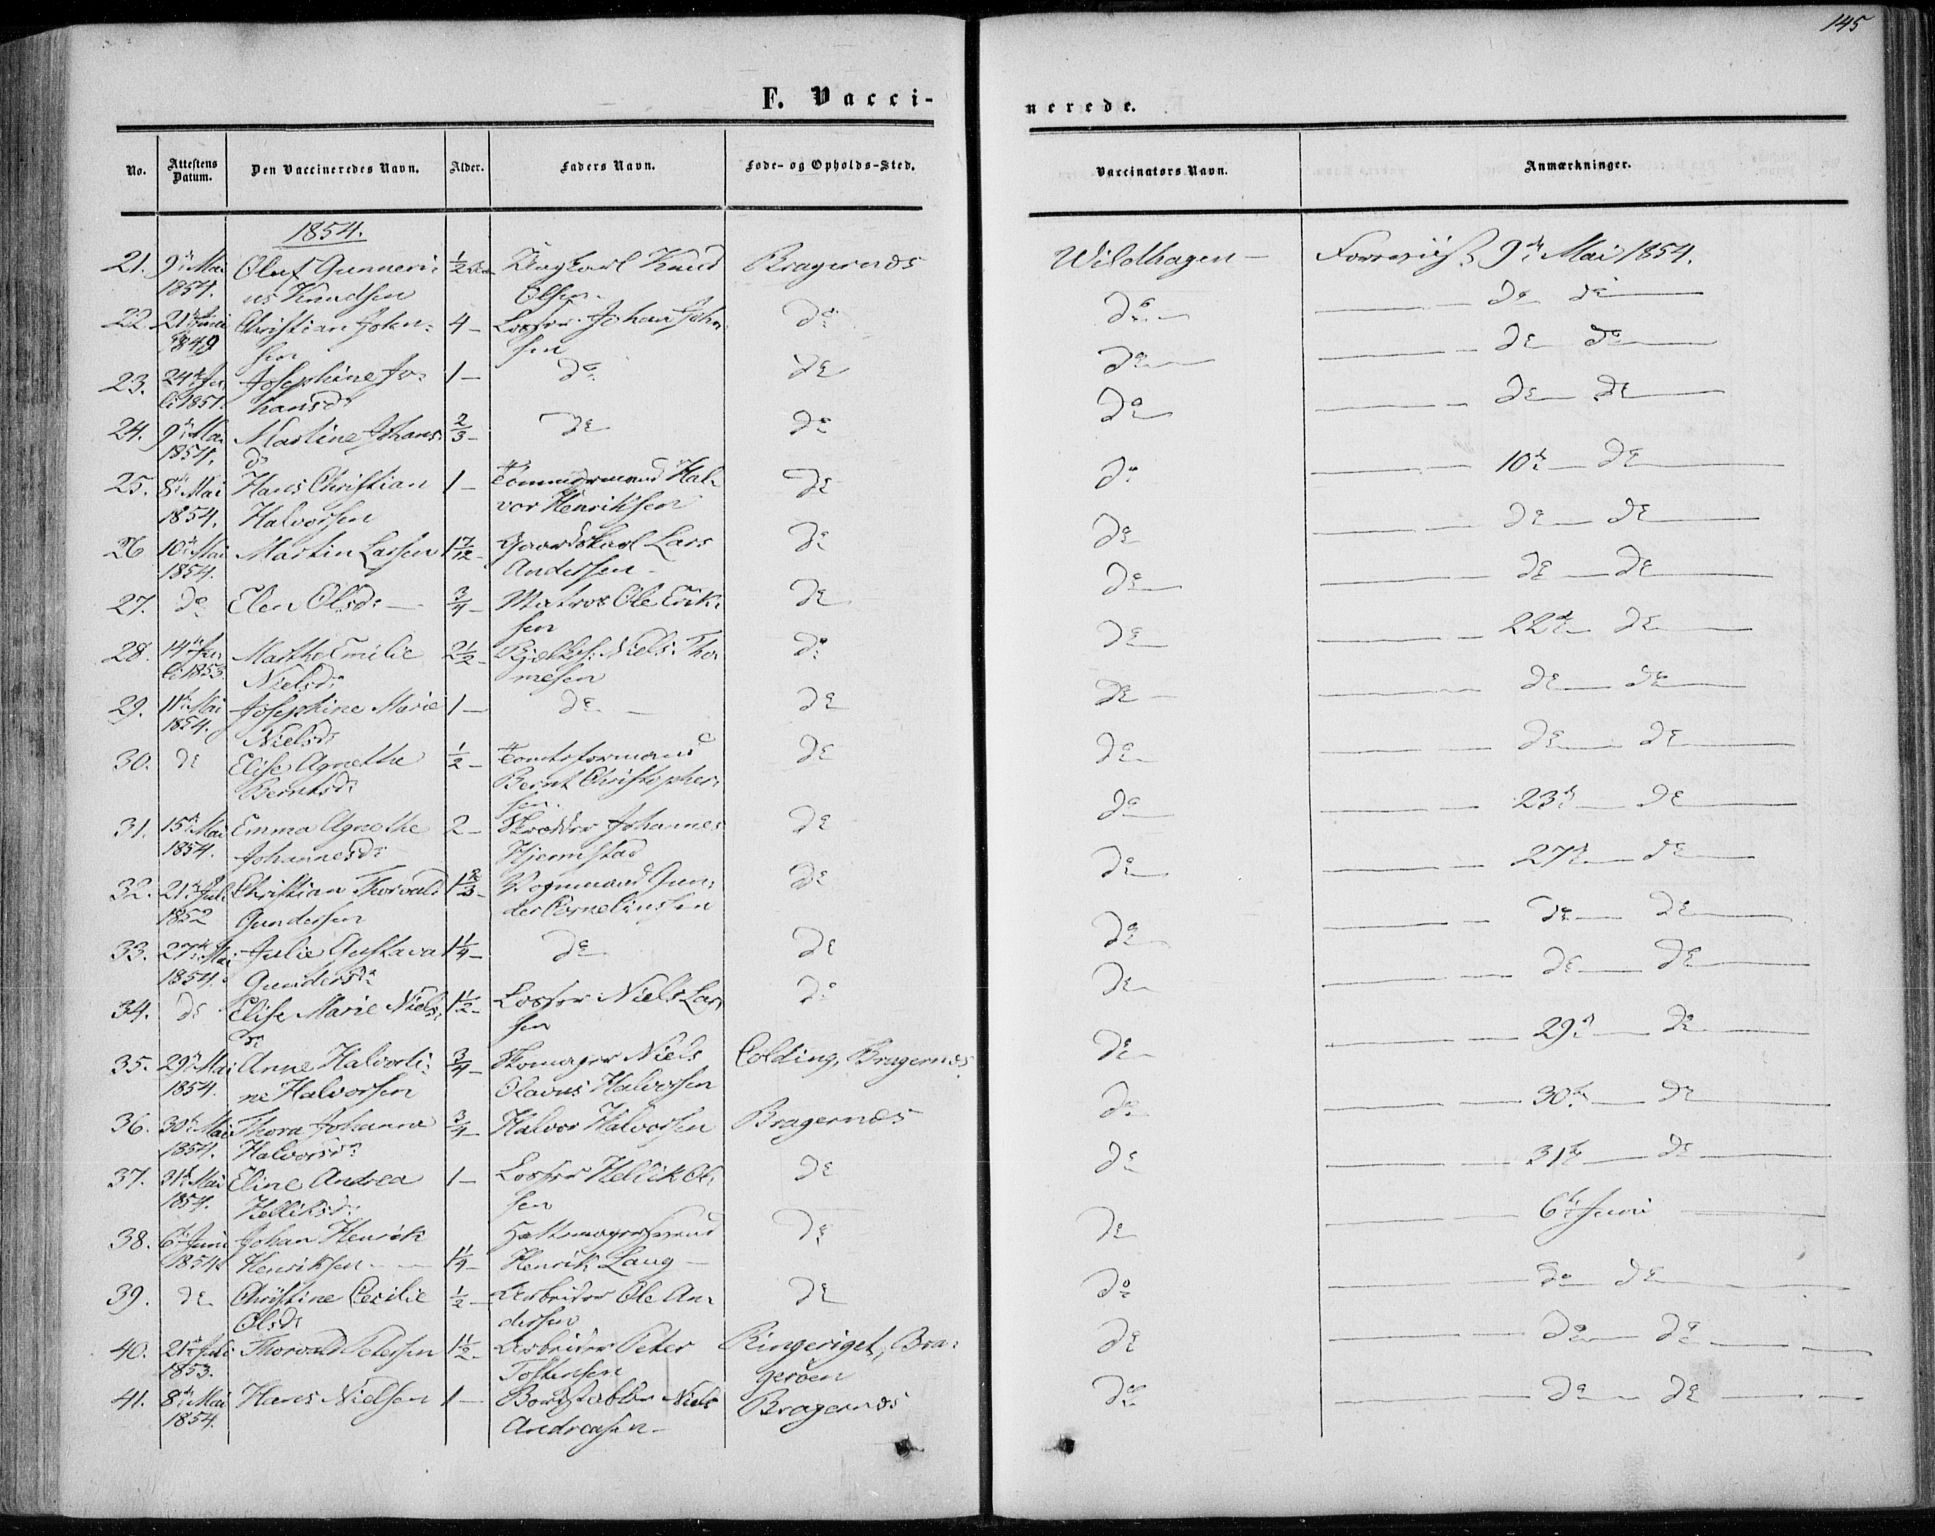 145
F. Vacci-
nerede.
No. Attestens Datum. Den Vaccineredes Navn. Alder. Faders Navn. Føde- og Opholds-Sted. Vaccinators Navn. Anmærkninger.
1854.
21. 9de Mai Oluf Gunneri- ½ Knud Bragernæs Wildhagen — 9de Mai 1854.
1854. us Knudsen Olsen.
22. 21de Juni Christian John- 4 — Johan John- do do — do do
1849 sen sen
23. 24de Ju- Josephine Jo- 1 — do do do — do do
li 1851. hansd:
24. 9de Mai Martine Johans- ⅔ — do do do — do do
1854. d:
25. 8de Mai Hans Christian 1 — Hal- do do — 10de — do
1854. Halvorsen vor Henriksen
26 10de Mai Martin Larsen 1 7/12 Gaardskarl Lars do do — do do
1854. Andersen —
27. do Elen Olsd: — ¾ — Matros Ole Erik- do do — do do
sen
28. 14de Ju- Marthe Emilie 2½ — Niels Tho- do do — 22de — do
li 1853. Nielsd: mesen
29. 11te Mai Josephine Marie 1 — do do do — do do
1854. Nielsd:
30. do Elise Agnethe ½ — Tomteformand do do — do do
Berntsd: Bernt Christopher-
sen.
31. 15de Mai Emma Agnethe 2 — Skrædder Johannes do do — 23de — do
1854. Johannesd: Hjermstad
32. 21de Juli Christian Thorvald 1⅔ — Vognmand Gun- do do — 27de — do
1852 Gundersen der Corneliussen
33. 27de Mai Julie Gustava 1¼ — do do do — do do
1854. Gundersd:
34. do Elise Marie Niels- 1½ — Niels Lar- do do — do do
d: sen
35. 29de Mai Anne Halvorli- ¾ — Skomager Niels Colding, Bragernæs do — 29de — do
1854. ne Halvorsen Olavus Halvorsen
36. 30te Mai Thora Johanne ¾ — Halvor Halvorsen Bragernæs do — 30te — do
1854. Halvorsd:
37. 31te Mai Eline Andrea 1 — Hellik Ol- do do — 31te — do
1854. Helliksd: sen
38. 6te Juni Johan Henrik Hattemagersvend do do — 6te Juni
1854. Henriksen — 1¼ — Henrik Lang —
39. do Christine Cecilie ½ — Arbeider Ole An- do do — do do
Olsd: dersen
40. 21de Juli Thorvald Petersen 1½ — Arbeider Peter Ringeriget, Bra- do — do do
1853. Tostensen gerøen
41. 8de Mai Hans Nielsen 1 — Niels Bragernæs do — do do
1854. Andreasen —